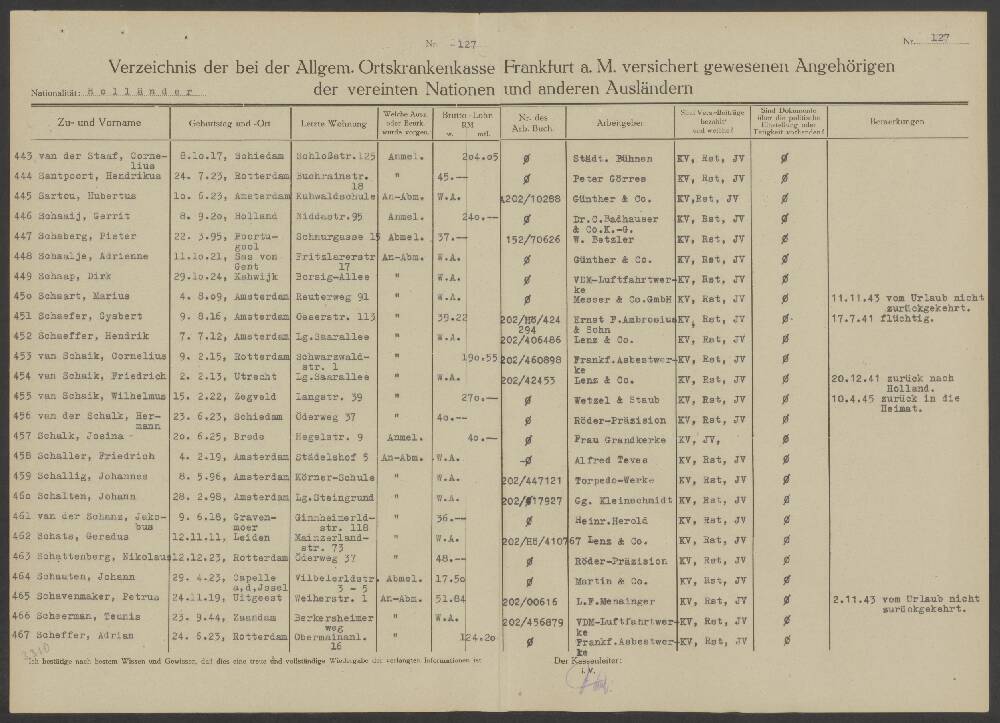 Nr. -127
Nr. 127
Verzeichnis der bei der Allgem. Ortskrankenkasse Frankfurt a. M. versichert gewesenen Angehörigen
Nationalität: Holländer der vereinten Nationen und anderen Ausländern
Zu- und Vorname Geburtstag und -Ort Letzte Wohnung Welche Ausw. oder Beurk. wurde vorgen. Brutto-Lohn RM w. mtl. Nr. des Arb. Buch. Arbeitgeber Sind Vers.-Beiträge bezahlt? und welche? Sind Dokumente über die politische Einstellung oder Tätigkeit vorhanden? Bemerkungen
443 van der Staaf, Corne- 8.10.17, Schiedam Schloßstr.125 Anmel. 204.05 ø Städt. Bühnen KV, Rst, JV ø
lius
444 Santpoort, Hendrikus 24. 7.23, Rotterdam Buchrainstr. " 45.-- ø Peter Görres KV, Rst, JV ø
18
445 Sartou, Hubertus 10. 6.23, Amsterdam Kuhwaldschule An-Abm. W.A. A202/10288 Günther & Co. KV,Rst, JV ø
446 Schaaij, Gerrit 8. 9.20, Holland Niddastr.95 Anmel. 240.-- ø Dr.C.Badhauser KV, Rst, JV ø
& Co.K.-G.
447 Schaberg, Pieter 22. 3.95, Poortu- Schnurgasse 15 Abmel. 37.-- 152/70626 W. Betzler KV, Rst, JV ø
gaol
448 Schaalje, Adrienne 11.10.21, Sas von Fritzlarerstr An-Abm. W.A. ø Günther & Co. KV, Rst, JV ø
Gent 17
449 Schaap, Dirk 29.10.24, Kahwijk Borsig-Allee " W.A. ø VDM-Luftfahrtwer- KV, Rst, JV ø
ke
450 Schaart, Marius 4. 8.09, Amsterdam Reuterweg 91 " W.A. ø Messer & Co.GmbH KV, Rst, JV ø 11.11.43 vom Urlaub nicht
zurückgekehrt.
451 Schaefer, Sysbert 9. 8.16, Amsterdam Oeserstr. 113 " 38.22 202/HÖ/424 Ernst F.Ambrosius KV, Rst, JV ø 17.7.41 flüchtig.
294 & Sohn
452 Schaeffer, Hendrik 7. 7.12, Amsterdam Lg.Saarallee " W.A. 202/406486 Lenz & Co. KV, Rst, JV ø
453 van Schaik, Cornelius 9. 2.15, Rotterdam Schwarzwald- " 190.55 202/460898 Frankf.Asbestwer- KV, Rst, JV ø
str. 1 ke
454 van Schaik, Friedrich 2. 2.13, Utrecht Lg.Saarallee " W.A. 202/42453 Lenz & Co. KV, Rst, JV ø 20.12.41 zurück nach
Holland.
455 van Schaik, Wilhelmus 15. 2.22, Zegveld Langstr. 39 " 270.-- ø Wetzel & Staub KV, Rst, JV ø 10.4.45 zurück in die
Heimat.
456 van der Schalk, Her- 23. 6.23, Schiedam Öderweg 37 " 40.-- ø Röder-Präzision KV, Rst, JV ø
mann
457 Schalk, Josina 20. 6.25, Breda Hegelstr. 9 Anmel. 40.-- ø Frau Grandkerke KV, JV, ø
458 Schaller, Friedrich 4. 2.19, Amsterdam Städelshof 5 An-Abm. W.A. -ø Alfred Teves KV, Rst, JV ø
459 Schallig, Johannes 8. 5.96, Amsterdam Körner-Schule " W.A. 202/447121 Torpedo-Werke KV, Rst, JV ø
460 Schalten, Johann 28. 2.98, Amsterdam Lg.Steingrund " W.A. 202/917927 Gg. Kleinschmidt KV, Rst, JV ø
461 van der Schans, Jako- 9. 6.18, Graven- Ginnheimerld- " 36.-- ø Heinr.Herold KV, Rst, JV ø
bus moer str. 118
462 Schats, Geradus 12.11.11, Leiden Mainzerland- " W.A. 202/HÖ/410767 Lenz & Co. KV, Rst, JV ø
str. 73
463 Schattenberg, Nikolaus 12.12.23, Rotterdam Öderweg 37 " 48.-- ø Röder-Präzision KV, Rst, JV ø
464 Schauten, Johann 29. 4.23, Capelle Vilbelerldstr. Abmel. 17.50 ø Martin & Co. KV, Rst, JV ø
a,d,Jssel 3 - 5
465 Schavenmaker, Petrus 24.11.19, Uitgeest Weiherstr. 1 An-Abm. 51.84 202/00616 L.F.Mensinger KV, Rst, JV ø 2.11.43 vom Urlaub nicht
zurückgekehrt.
466 Scheerman, Teunis 23. 9.44, Zaandam Berkersheimer " W.A. 202/456879 VDM-Luftfahrtwer- KV, Rst, JV ø
weg ke
467 Scheffer, Adrian 24. 6.23, Rotterdam Obermainanl. " 124.20 ø Frankf.Asbestwer- KV, Rst, JV ø
16 ke
Ich bestätige nach bestem Wissen und Gewissen, daß dies eine treue und vollständige Wiedergabe der verlangten Informationen ist Der Kassenleiter:
i.V.